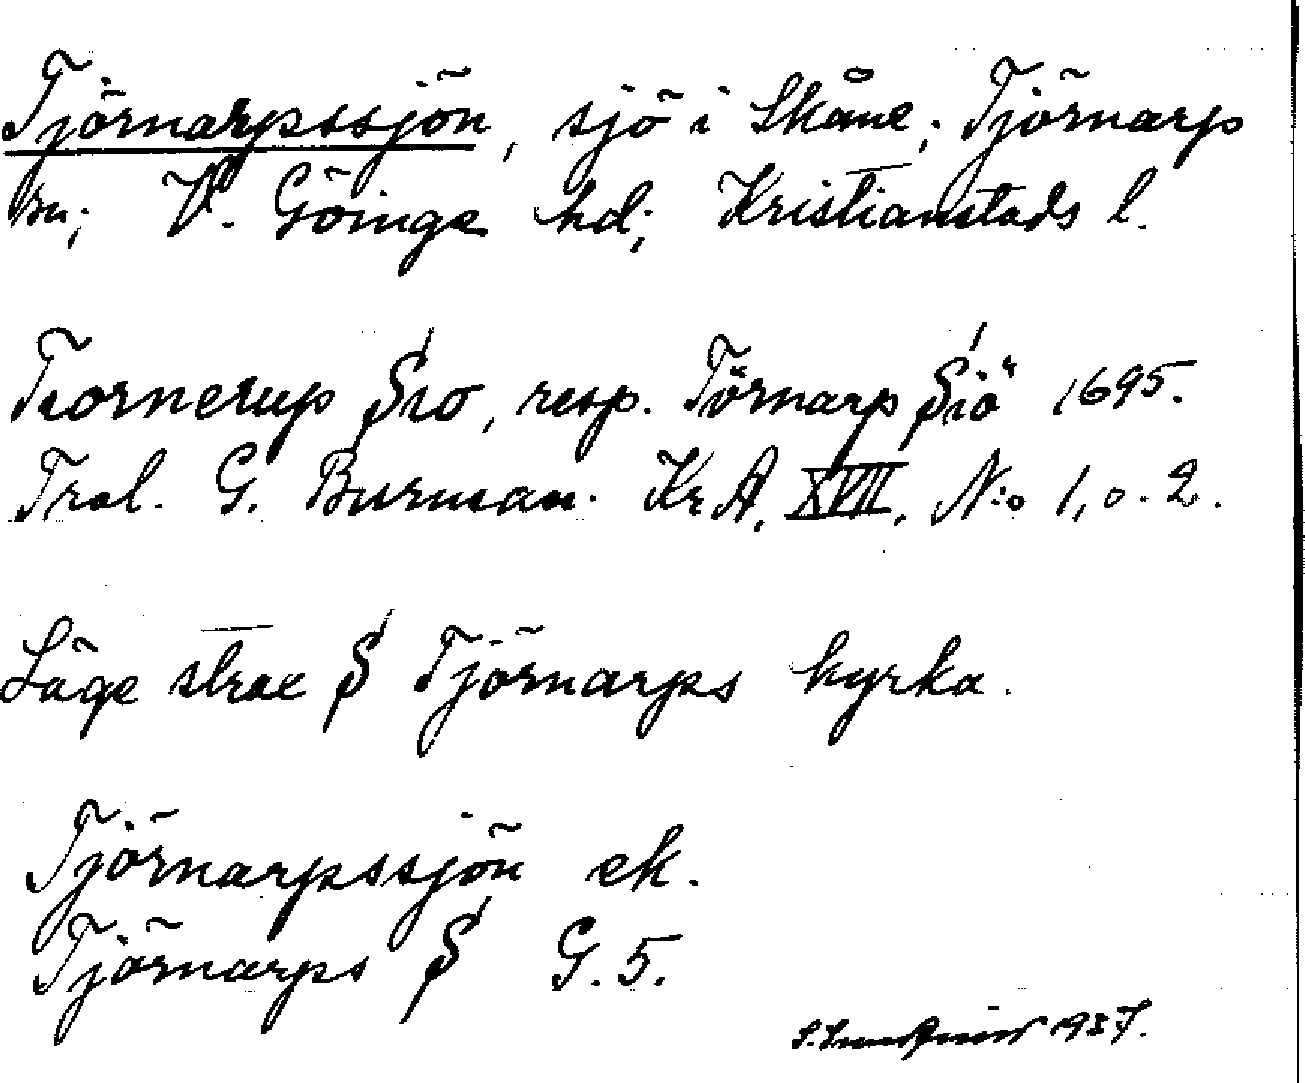 Tjörnarpssjön, sjö i Skåne; Tjörnarp
sn; V. Göinge hd; Kristianstads l.
Tiornerup Sio, resp. Törnarp Siö 1695.
Trol. G. Burman. KrA, XVII, N:o 1, o. 2.
Läge strax S Tjörnarps kyrka.
Tjörnarpssjön ek.
Tjörnarps S G. 5.
1937.